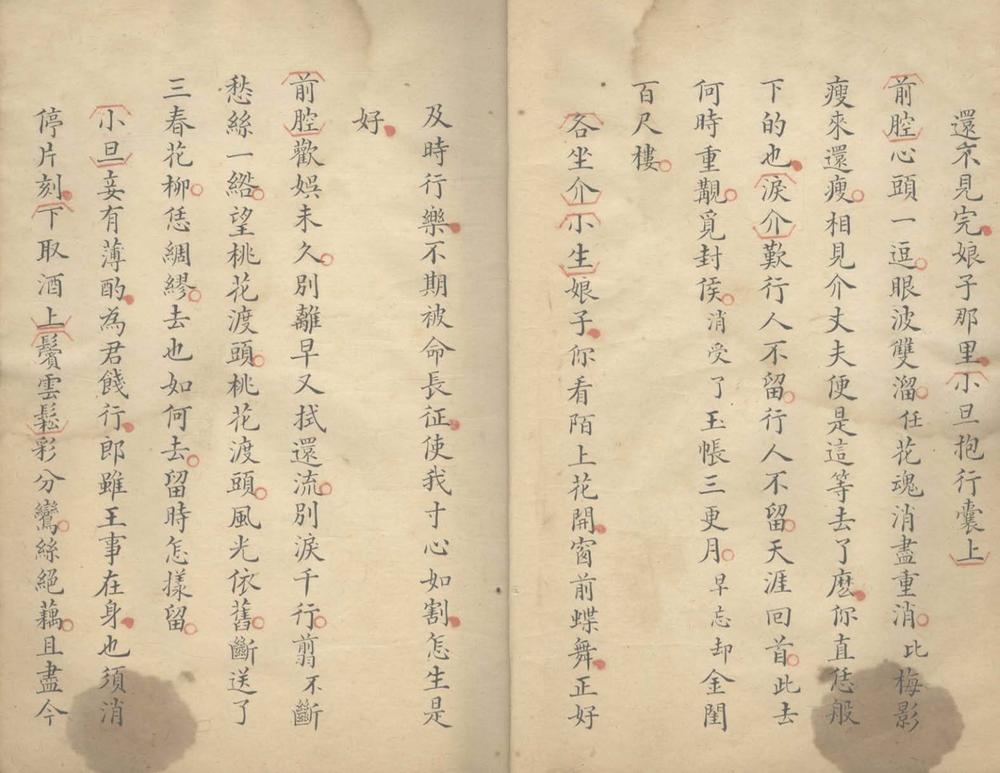 還不見完娘子那里小旦抱行囊上
前腔心頭一逗眼波雙溜任花魂消盡重消比梅影
瘦來還瘦相見介丈夫便是這等去了麽你直恁般
下的也淚介歎行人不留行人不留天涯回首此去
何時重覯覓封侯消受了玉帳三更月早忘却金閨
百尺樓
各坐介小生娘子你看陌上花開窗前蝶舞正好
及時行樂不期被命長征使我寸心如割怎生是
好
前腔歡娛未久別離早又拭還流別淚千行剪不斷
愁絲一綹望桃花渡頭桃花渡頭風光依舊斷送了
三春花柳恁綢繆去也如何去留時怎樣留
小旦妾有薄酌為君餞行郎雖王事在身也須消
停片刻下取酒上鬢雲鬆彩分鸞絲絕藕且盡今